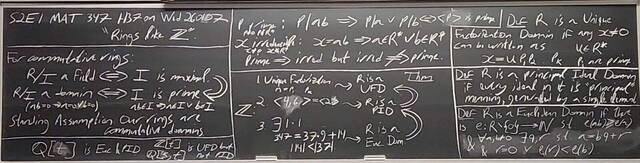 S2E1 MAT 347 H37 on Wed 260107
"Rings like Z."
For commutative rings:
R/I a Field ⟺ I is maximal
R/I a domain ⟺ I is prime
(ab=0 ⇒ a=0 ∨ b=0) ab∈I ⇒ a∈I ∨ b∈I
Standing Assumption Our rings are
commutative domains
Q[t] is Euc & PID
Z[t] is UFD but
Q[s,t] not PID
P prime: P|ab ⟹ P|a ∨ P|b ⟺ <P> is prime
x irreducible: x=ab ⟹ a∈R* ∨ b∈R*
Prime ⟹ irred but irred ⇏ prime.
Z:
1. Unique Factorization
R is a UFD
Thm
2. <4,6> = <2>
R is a PID
3. ∃ 1:1
347 = 37·9+14
|14| < |37|
R is a Euc. Dom
Def R is a Unique
Factorization Domain if any x≠0
can be written as u∈R*
x = u P₁ P₂ Pₖ are prime
Def R is a principal Ideal Domain
if every ideal in it is "principal"
meaning, generated by a single
Def R is a Euclidean Domain if there
is e: R\{0} → N
st a = bq + r
& r=0 ∨ e(r) < e(b)